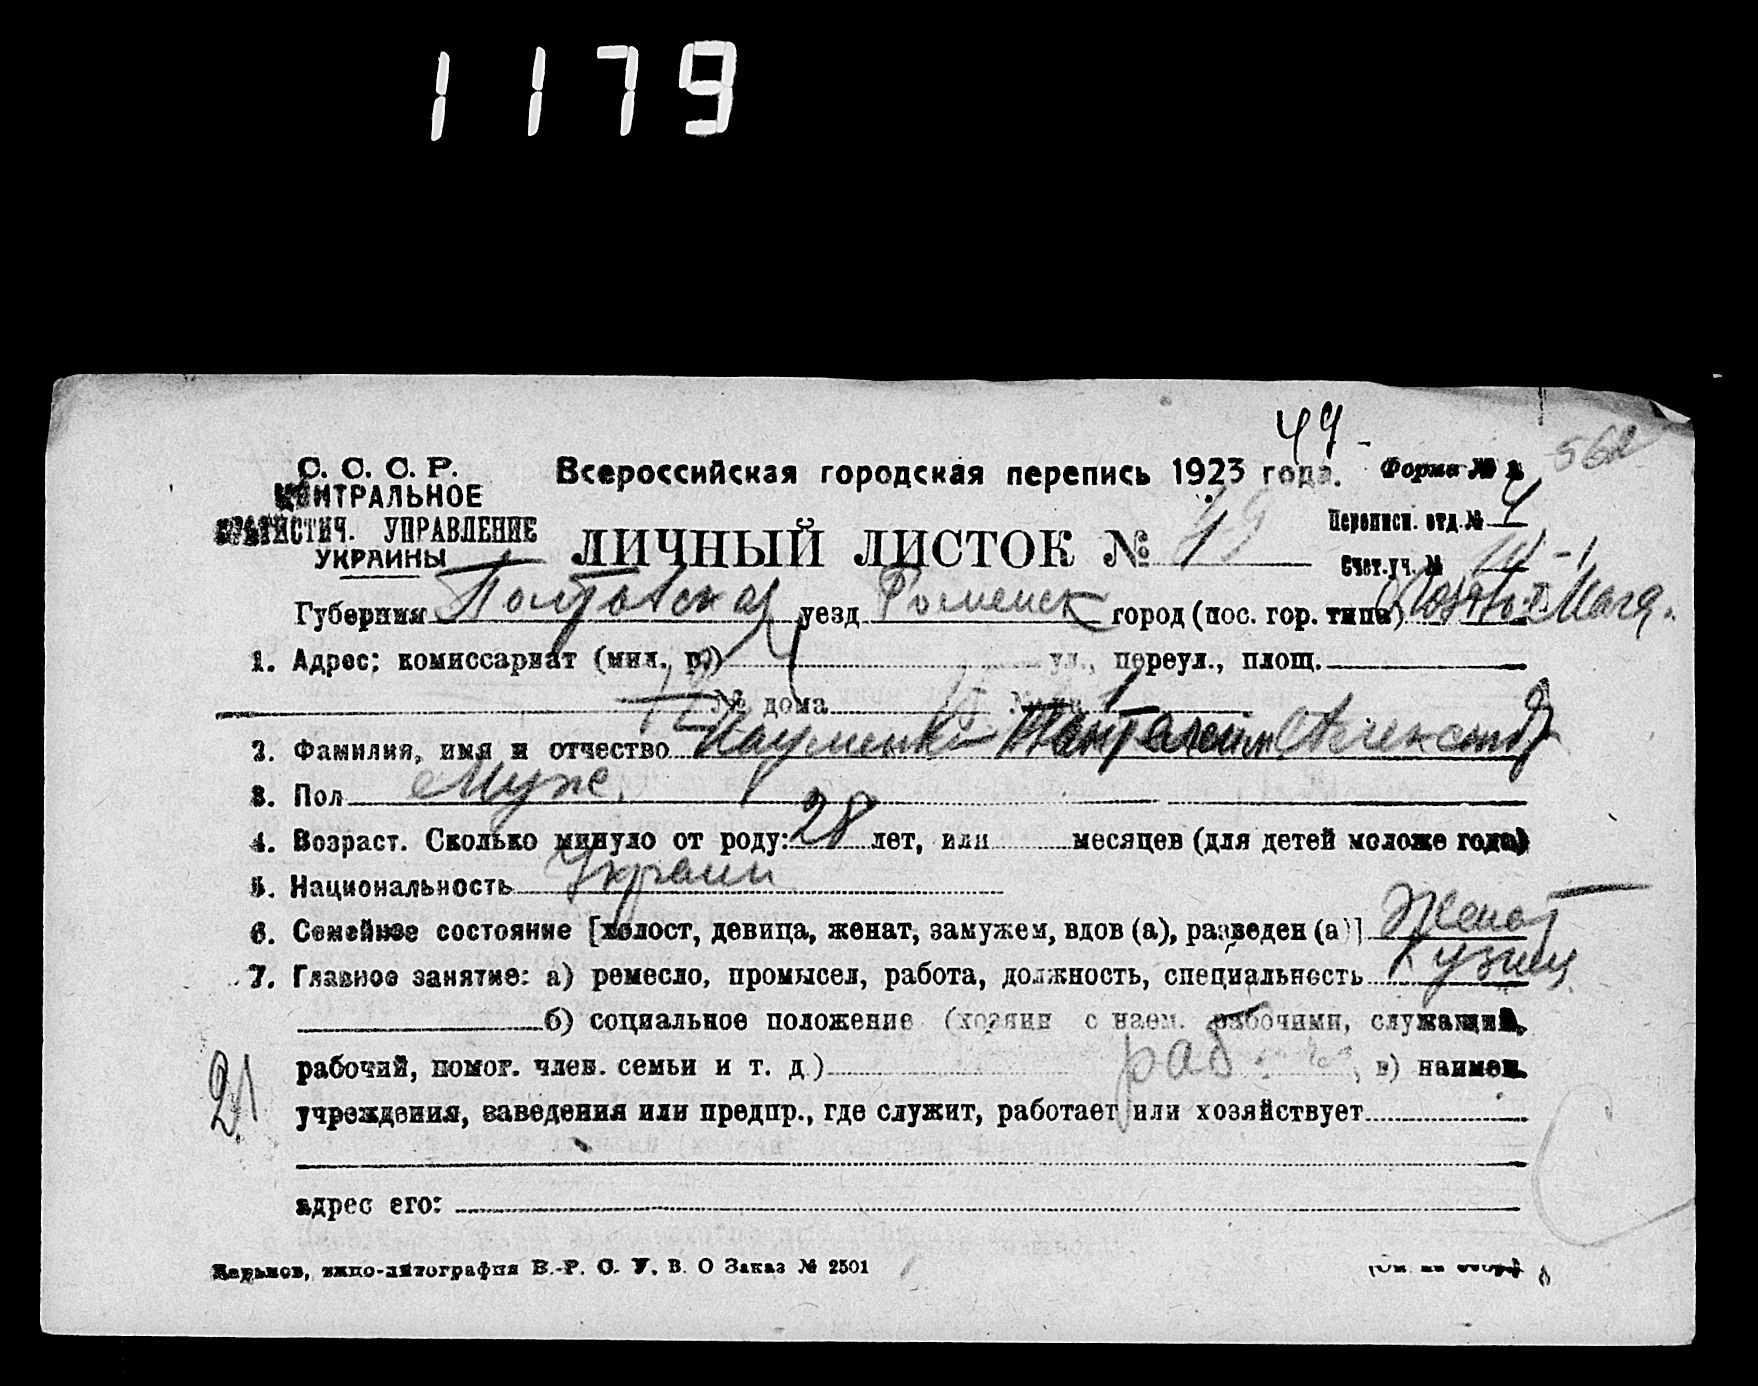 1179
49
562
С. С. С. Р.
ЦЕНТРАЛЬНОЕ
СТАТИСТИЧ. УПРАВЛЕНИЕ
УКРАИНЫ
Всероссийская городская перепись 1923 года.
Форма № 2
ЛИЧНЫЙ ЛИСТОК № 1
Переписн. отд. № 4
Счет. уч. №
Губерния Полтавская уезд Роменск город (пос. гор. типа)
1. Адрес; комиссариат (мил. р.) 4 ул., переул., площ.
№ дома
2. Фамилия, имя и отчество Науменко Панталеим Александр
3. Пол Муж.
4. Возраст. Сколько минуло от роду: 28 лет, или месяцев (для детей моложе года)
5. Национальность Украин
6. Семейное состояние [холост, девица, женат, замужем, вдов (а), разведен (а)] Женат
7. Главное занятие: а) ремесло, промысел, работа, должность, специальность Кузнец
б) социальное положение (хозяин с наем. рабочими, служащий,
рабочий, помог. член. семьи и т. д.) раб , в) наимен.
учреждения, заведения или предпр., где служит, работает или хозяйствует
21
адрес его:
Харьков, типо-литография В.-Р. О. У. В. О Заказ № 2501
(См. на обор.)